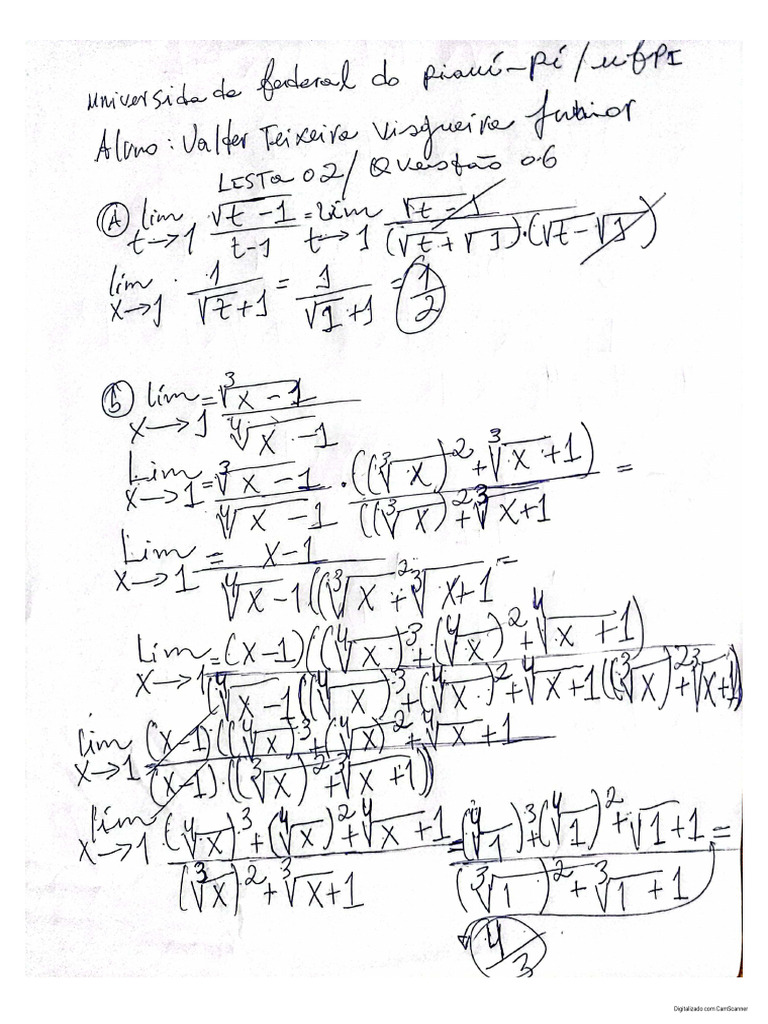 Universidade federal do Piauí-Pí/ufPI
Aluno: Valter Teixeira Visgueira Junior
LISTA 02/ Questão 06
(A) lim t→1 √t-1/t-1 = lim t→1 √t-1/(√t+√1)·(√t-√1)
lim x→1 · 1/√t+1 = 1/√1+1 = 1/2
(b) lim x→1 = ∛x-1/∜x-1
Lim x→1 = ∛x-1/∜x-1 · ((∛x)²+∛x+1)/((∛x)²+∛x+1 =
Lim x→1 = x-1/∜x-1((∛x²+∛x+1 =
Lim x→1 = (x-1)((∜x)³+(∜x)²+∜x+1)/(∜x-1((∜x)³+(∜x)²+∜x+1((∛x)²+∛x+1)
lim x→1 (x-1)((∜x)³+(∜x)²+∜x+1/(x-1)·((∛x)²+∛x+1))
lim x→1 (∜x)³+(∜x)²+∜x+1/(∛x)²+∛x+1 = (∜1)³+(∜1)²+√1+1/(∛1)²+∛1+1 =
4/3
Digitalizado com CamScanner